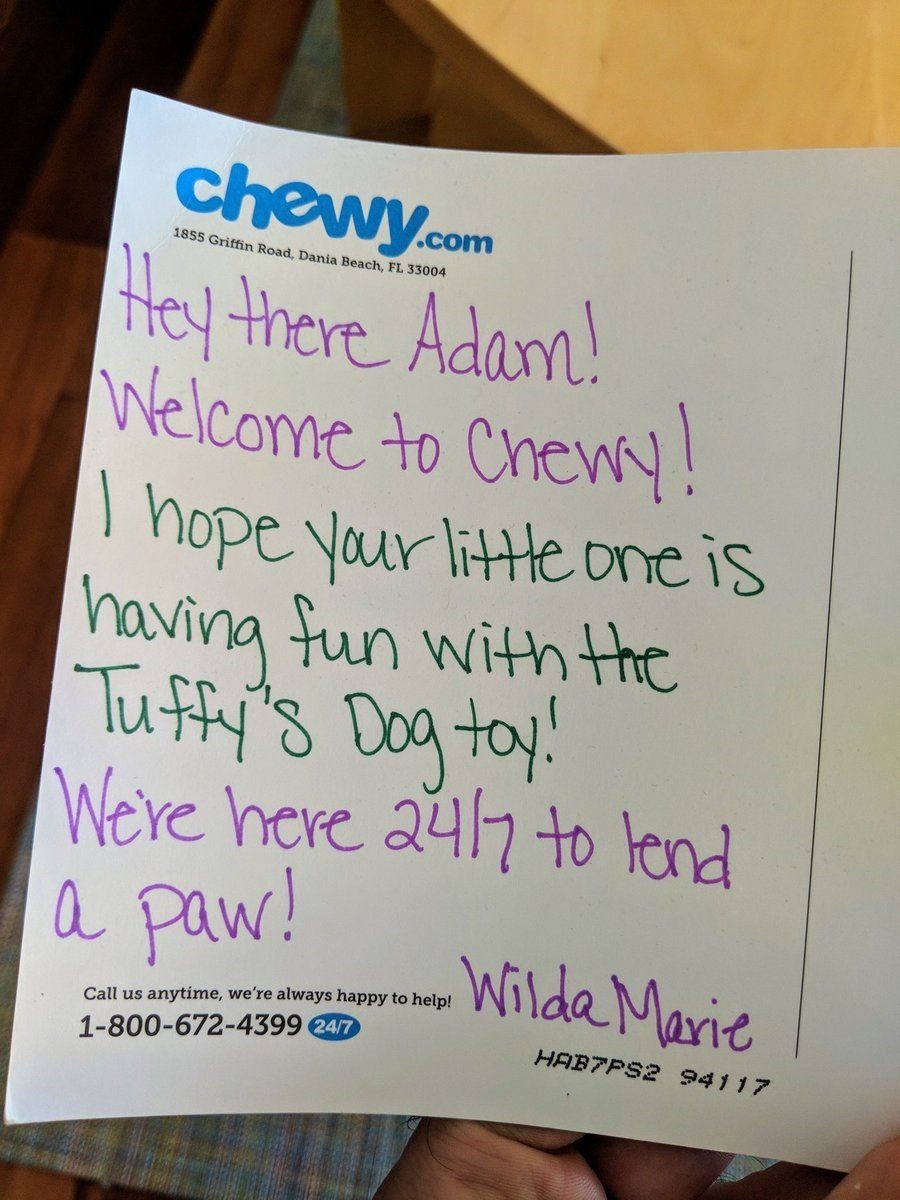 chewy.com
1855 Griffin Road, Dania Beach, FL 33004
Hey there Adam!
Welcome to Chewy!
I hope your little one is
having fun with the
Tuffy's Dog toy!
We're here 24/7 to lend
a paw!
Wilda Marie
Call us anytime, we're always happy to help!
1-800-672-4399 24/7
HAB7PS2 94117